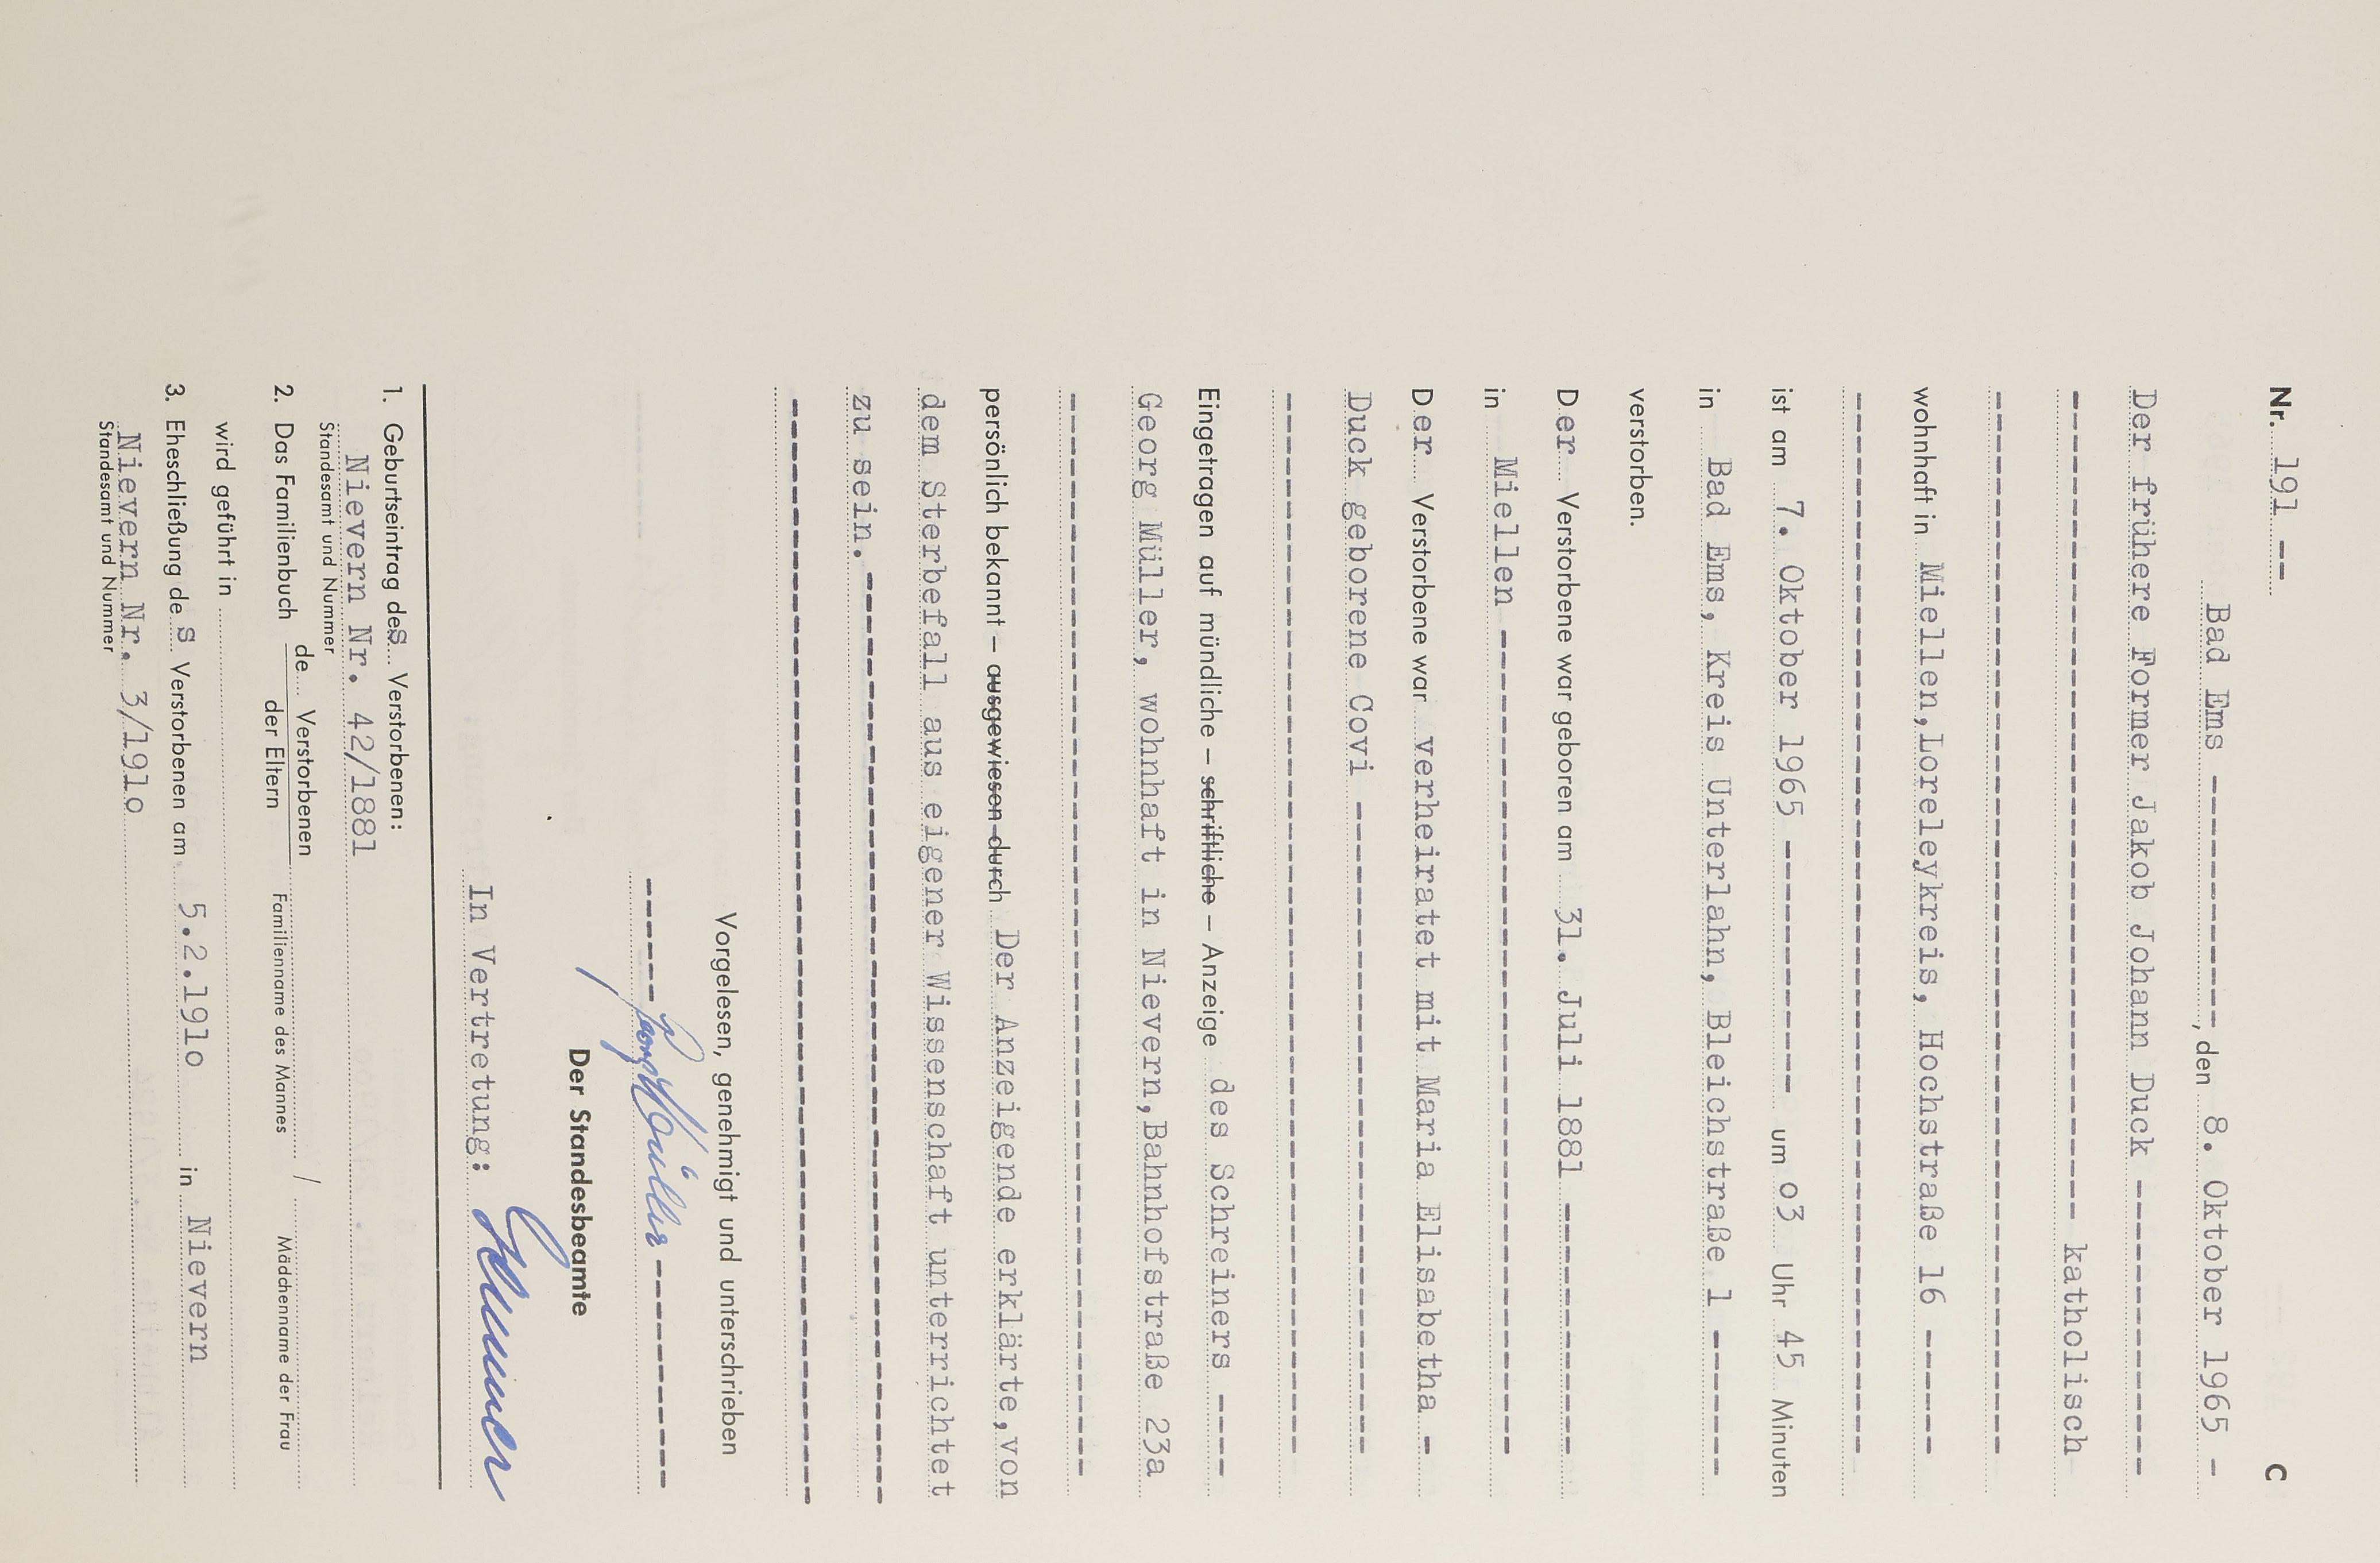 Nr. 191 -- C
Bad Ems ------------, den 8. Oktober 1965 -
Der frühere Former Jakob Johann Duck ---------------
--------------------------------------- katholisch
----------------------------------------------------
wohnhaft in Miellen,Loreleykreis, Hochstraße 16 ------
----------------------------------------------------
ist am 7. Oktober 1965 ------------ um o3 Uhr 45 Minuten
in Bad Ems, Kreis Unterlahn, Bleichstraße 1 -------
verstorben.
Der Verstorbene war geboren am 31. Juli 1881 ------------
in Miellen ----------------------------------------
Der Verstorbene war verheiratet mit Maria Elisabetha -
Duck geborene Covi -------------------------------
----------------------------------------------------
Eingetragen auf mündliche – schriftliche – Anzeige des Schreiners ----
Georg Müller, wohnhaft in Nievern,Bahnhofstraße 23a
----------------------------------------------------
persönlich bekannt – ausgewiesen durch Der Anzeigende erklärte,von
dem Sterbefall aus eigener Wissenschaft unterrichtet
zu sein. --------------------------------------------
----------------------------------------------------
Vorgelesen, genehmigt und unterschrieben
------ Georg Müller -----------
Der Standesbeamte
In Vertretung:
1. Geburtseintrag des Verstorbenen:
Nievern Nr. 42/1881
Standesamt und Nummer
2. Das Familienbuch de Verstorbenen /
der Eltern Familienname des Mannes Mädchenname der Frau
wird geführt in
3. Eheschließung de s Verstorbenen am 5.2.191o in Nievern
Nievern Nr. 3/191o
Standesamt und Nummer